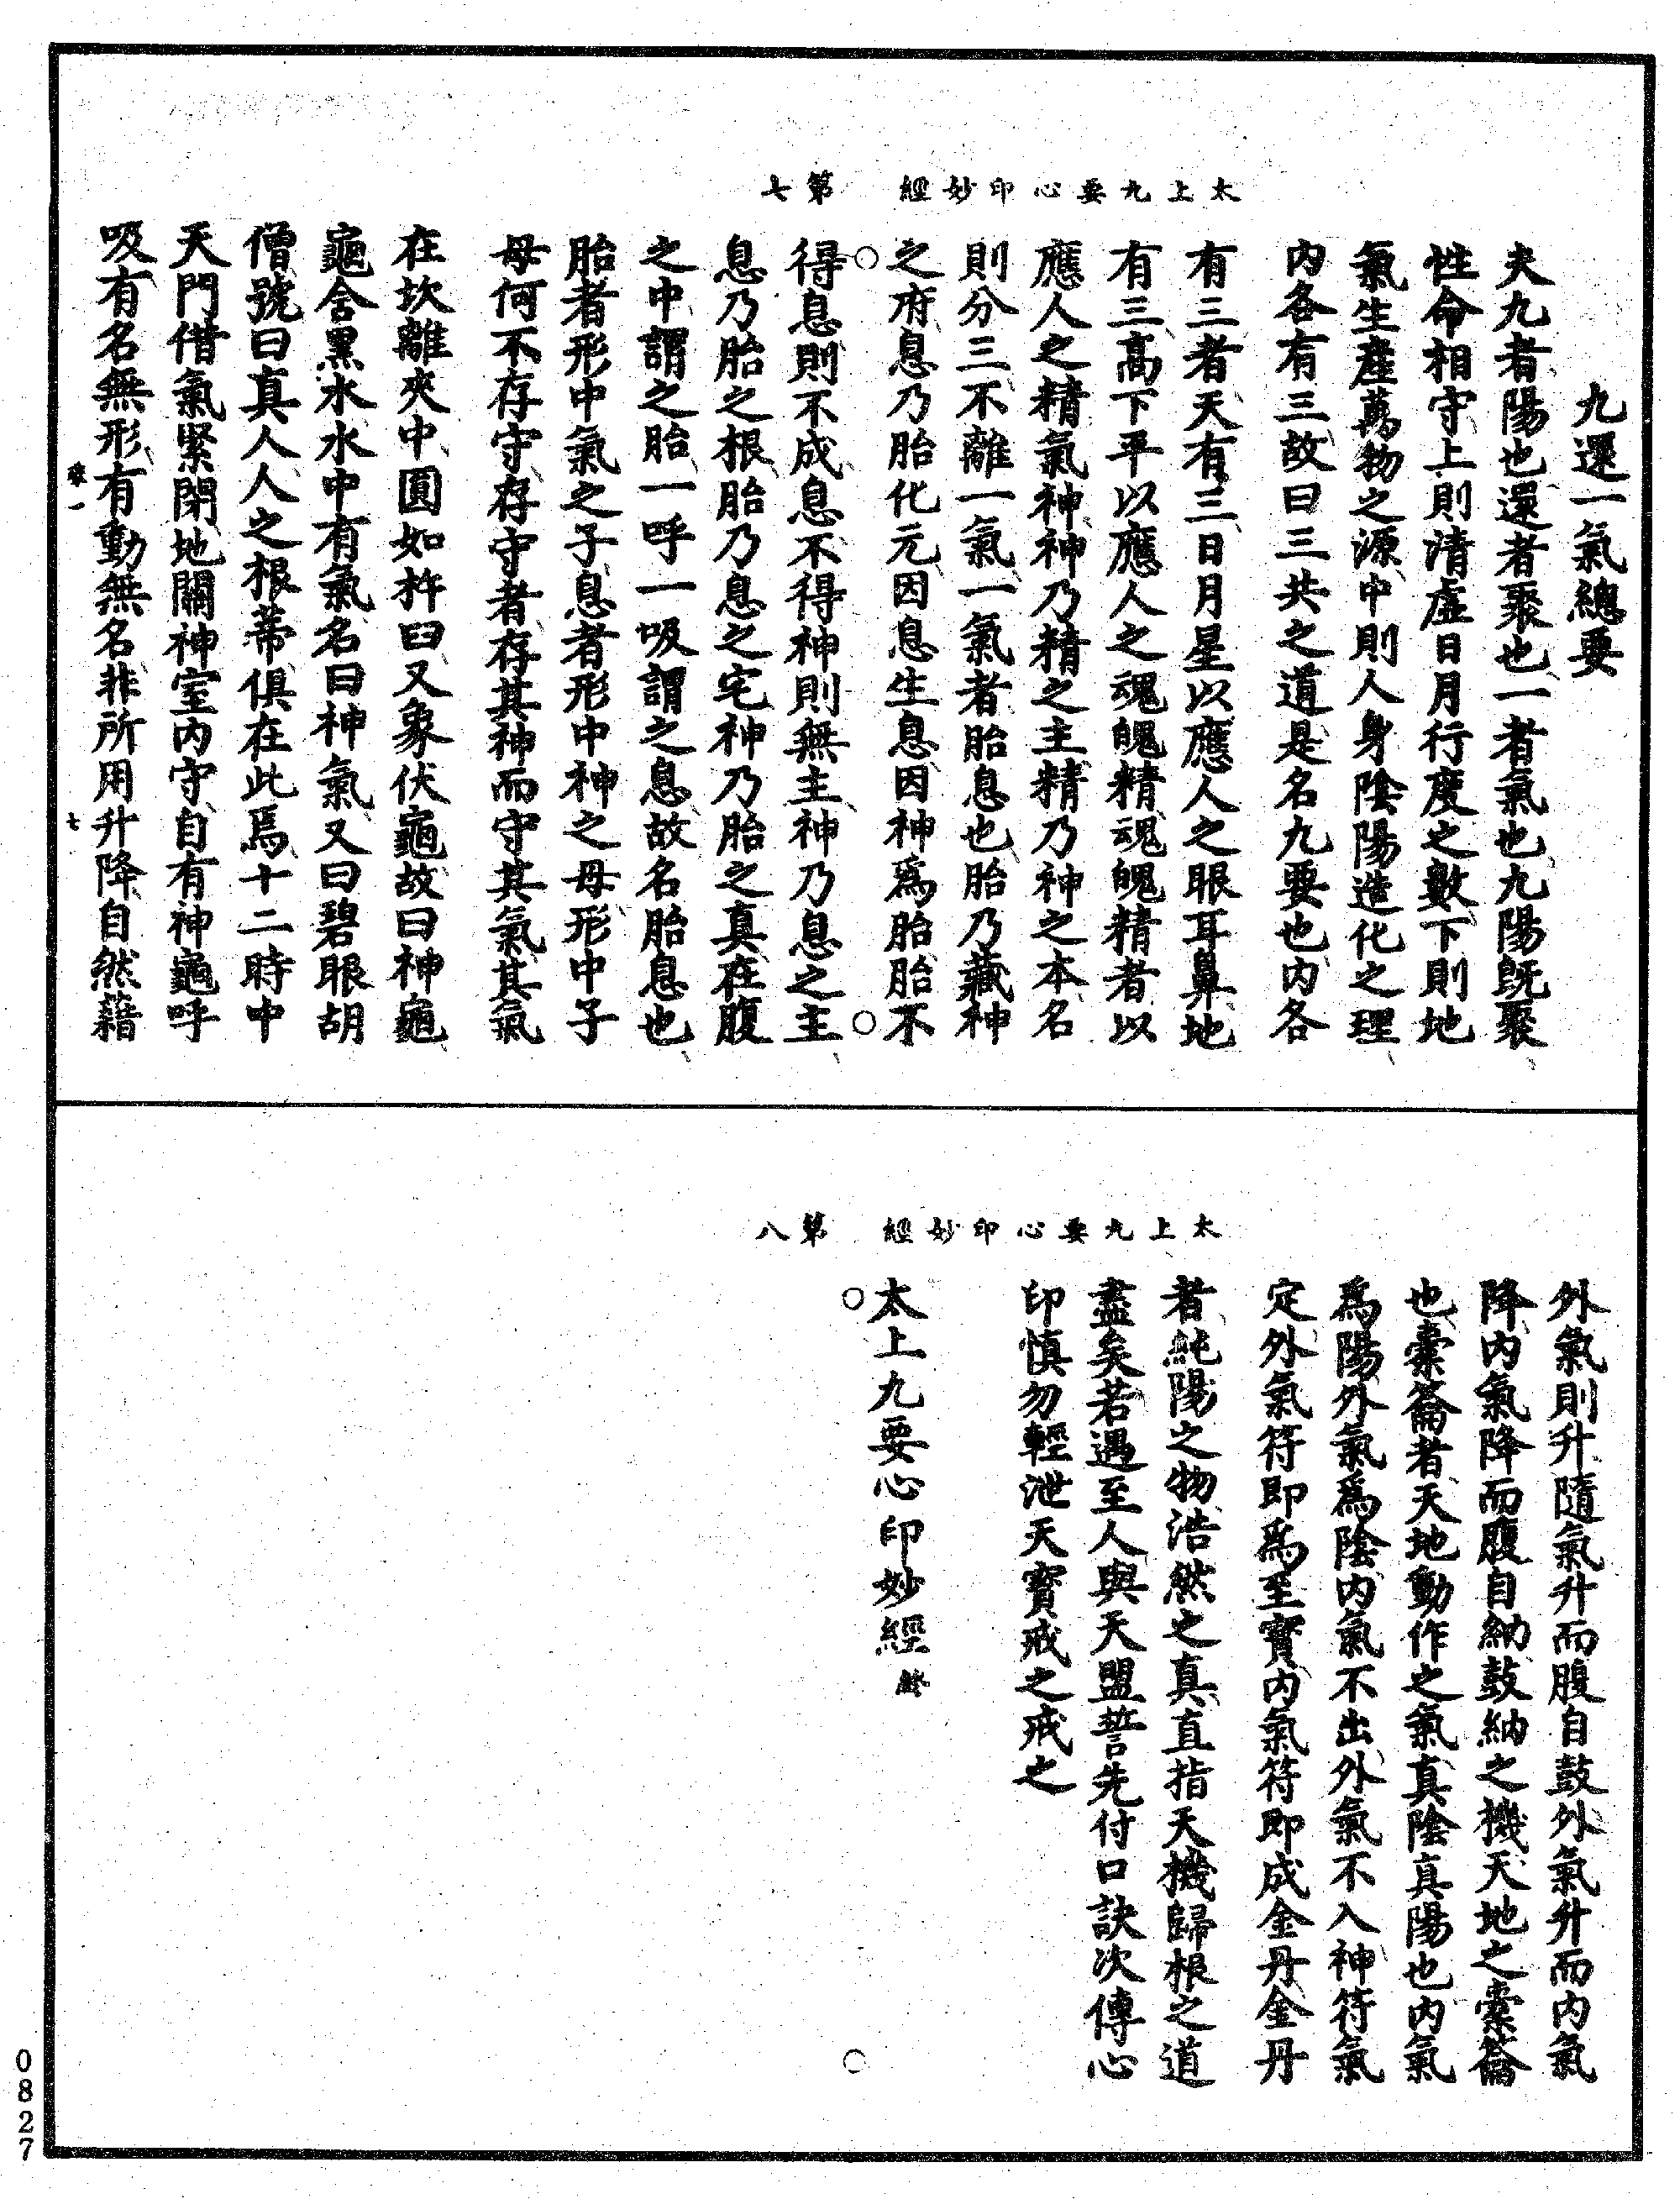 太上九要心印妙經　第七
九還一氣總要
夫九者陽也還者聚也一者氣也九陽既聚
性命相守上則清虛日月行度之數下則地
氣生產萬物之源中則人身陰陽造化之理
內各有三故曰三共之道是名九要也內各
有三者天有三日月星以應人之眼耳鼻地
有三高下平以應人之魂魄精魂魄精者以
應人之精氣神神乃精之主精乃神之本名
則分三不離一氣一氣者胎息也胎乃藏神
之府息乃胎化元因息生息因神為胎胎不
得息則不成息不得神則無主神乃息之主
息乃胎之根胎乃息之宅神乃胎之真在腹
之中謂之胎一呼一吸謂之息故名胎息也
胎者形中氣之子息者形中神之母形中子
母何不存守存守者存其神而守其氣其氣
在坎離夾中圓如杵臼又象伏龜故曰神龜
龜含黑水水中有氣名曰神氣又曰碧眼胡
僧號曰真人人之根蒂俱在此焉十二時中
天門借氣緊閉地關神室內守自有神龜呼
吸有名無形有動無名非所用升降自然藉
七
太上九要心印妙經　第八
外氣則升隨氣升而腹自鼓外氣升而內氣
降內氣降而腹自納鼓納之機天地之橐籥
也橐籥者天地動作之氣真陰真陽也內氣
為陽外氣為陰內氣不出外氣不入神符氣
定外氣符即為至寶內氣符即成金丹金丹
者純陽之物浩然之真直指天機歸根之道
盡矣若遇至人與天盟誓先付口訣次傳心
印慎勿輕泄天寶戒之戒之
太上九要心印妙經終
0827